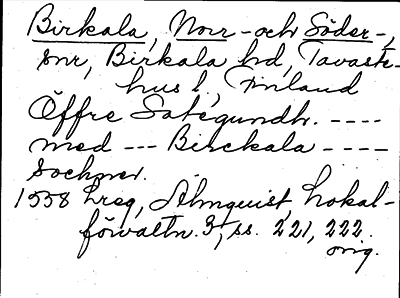 Birkala, Norr- och Söder-,
snr, Birkala hd, Tavaste-
hus l, Finland
Öffre Sategundh. ----
med --- Birckala ----
Sochner.
1558 Lreg, Almquist, Lokal-
förvaltn. 3, ss. 221, 222.
orig.